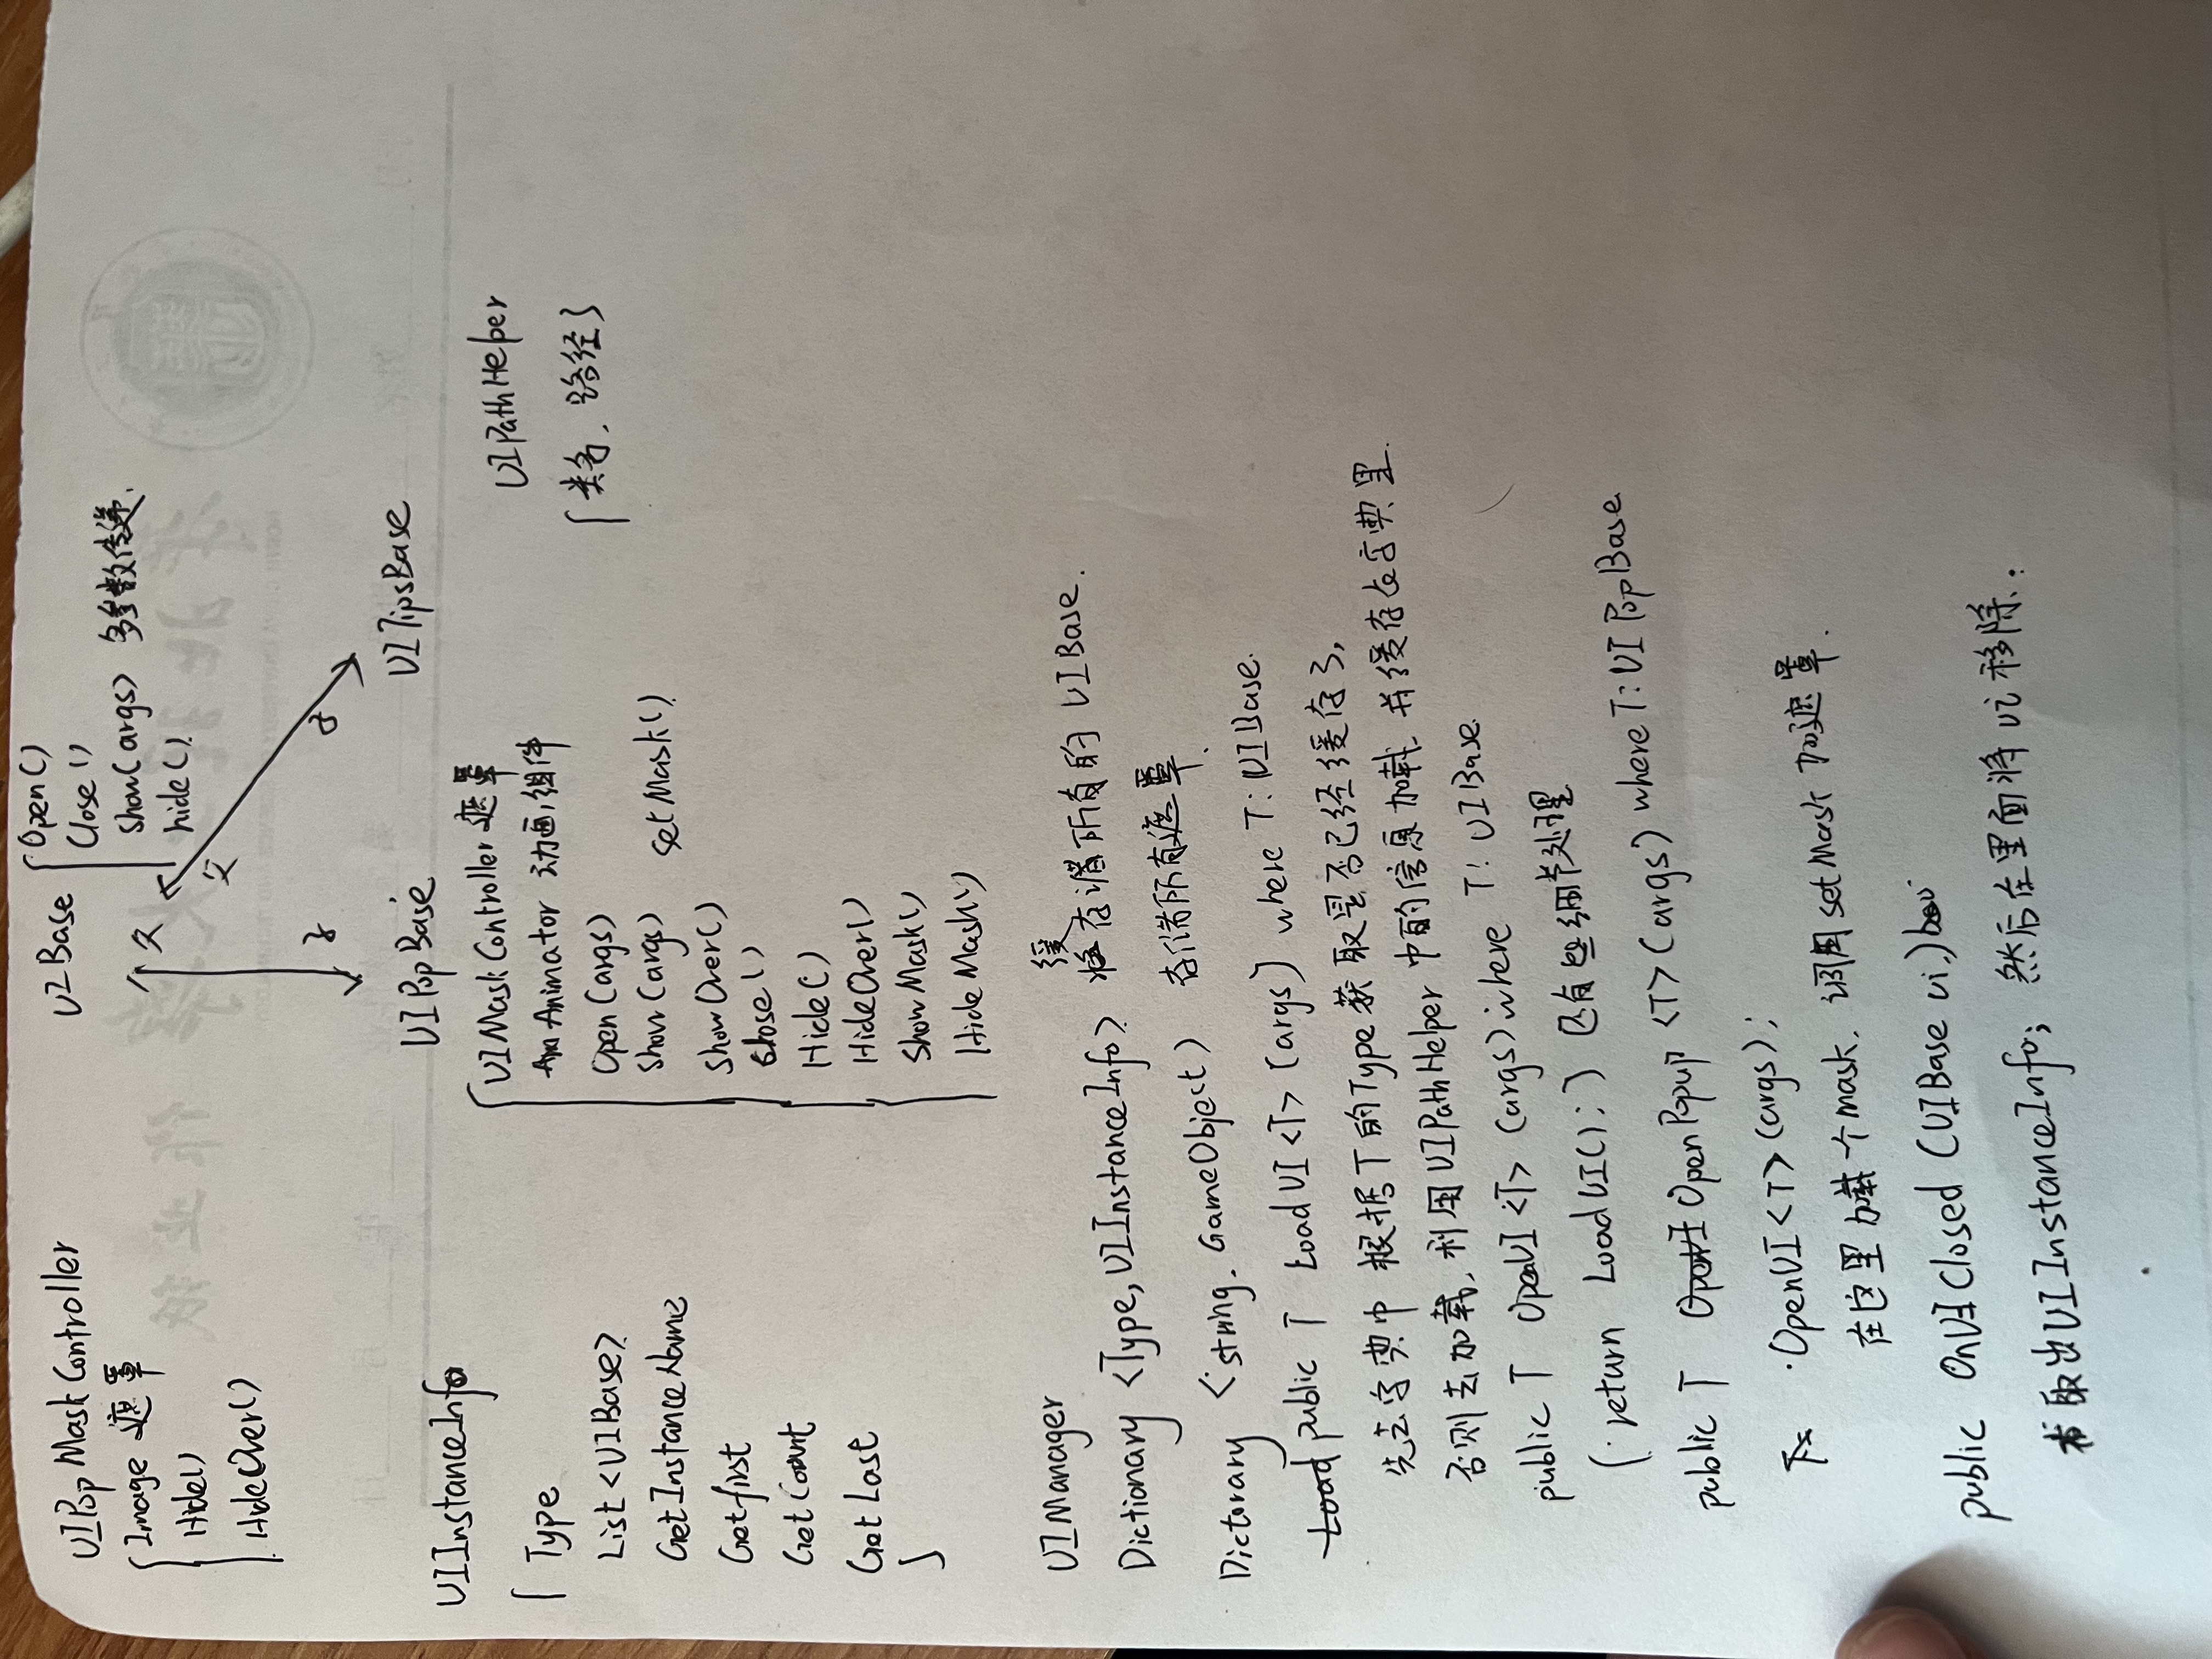 UIPopMaskController
Image 遮罩
Hide()
HideOver()
UIBase
Open()
Close()
show(args) 多参数传递.
hide().
父
父
子
子
UIPopBase
UITipsBase
UIInstanceInfo
Type
List<UIBase>
GetInstanceName
Getfirst
GetCount
GetLast
UIMaskController 遮罩
Animator 动画组件
Open(args)
Show(args) setMask()
ShowOver()
Close()
Hide()
HideOver()
ShowMask()
HideMask()
UIPathHelper
{类名, 路径}
UIManager
Dictionary <Type, UIInstanceInfo> 缓存所有的 UIBase.
Dictorary <string. GameObject) 存储所有遮罩.
public T LoadUI<T>(args) where T: UIBase.
先去字典中 根据T的Type获取是否已经缓存了,
否则去加载, 利用UIPathHelper中的信息加载, 并缓存在字典里.
public T OpenUI<T> (args) where T: UIBase.
{ return LoadUI(); } 还有些细节处理
public T OpenPopup<T>(args) where T: UIPopBase
OpenUI<T>(args);
在这里加载个mask, 调用setMask 加遮罩.
public OnUIClosed (UIBase ui)
取出UIInstanceInfo; 然后在里面将ui移除.